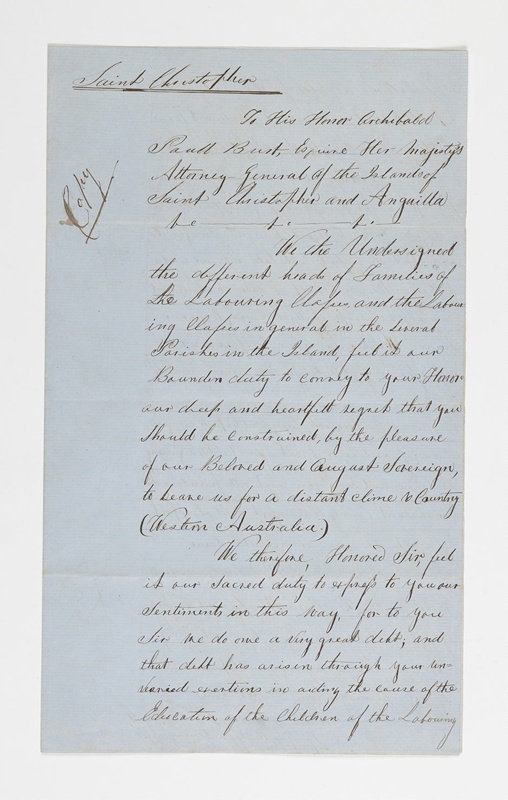 Saint Christopher
Copy
To His Honor Archibald
Paull Burt, Esquire Her Majesty's
Attorney General of the Islands of
Saint Christopher and Anguilla
We the Undersigned
the different heads of Families of
the Labouring Classes, and the Labour
ing Classes in general in the Several
Parishes in the Island, feel it our
Bounden duty to convey to your Honor
our deep and heartfelt regret that you
should be constrained, by the pleasure
of our Beloved and August Sovereign,
to Leave us for a distant clime & Country
(Western Australia)
We therefore, Honored Sir, feel
it our Sacred duty to express to you our
Sentiments in this Way, for to you
Sir we do owe a very great debt; and
that debt has arisen through your un-
varied exertions in aiding the cause of the
Education of the Children of the Labouring